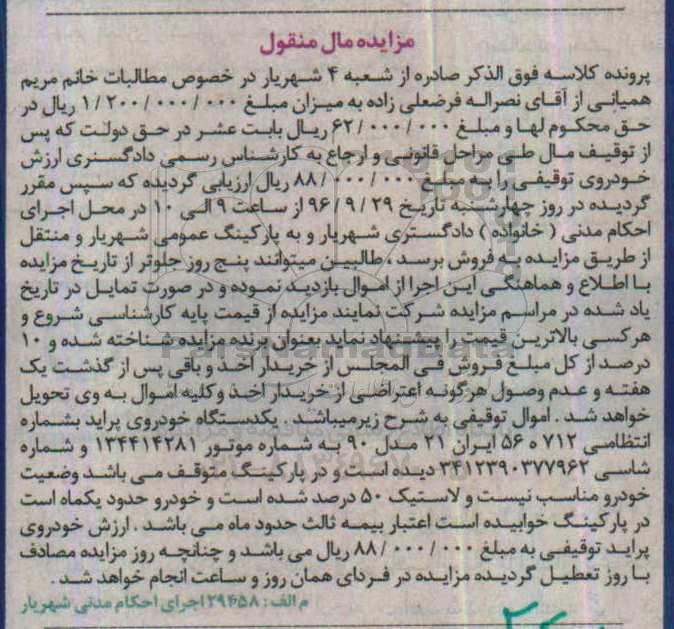 مزایده مال منقول
پرونده کلاسه فوق الذکر صادره از شعبه ۴ شهریار در خصوص مطالبات خانم مریم
همیانی از آقای نصراله فرضعلی زاده به میزان مبلغ ۱/۲۰۰/۰۰۰/۰۰۰ ریال در
حق محکوم لها و مبلغ ۶۲/۰۰۰/۰۰۰ ریال بابت عشر در حق دولت که پس
از توقیف مال طی مراحل قانونی و ارجاع به کارشناس رسمی دادگستری ارزش
خودروی توقیفی را به مبلغ ۸۸/۰۰۰/۰۰۰ ریال ارزیابی گردیده که سپس مقرر
گردیده در روز چهارشنبه تاریخ ۹۶/۹/۲۹ از ساعت ۹ الی ۱۰ در محل اجرای
احکام مدنی ( خانواده ) دادگستری شهریار و به پارکینگ عمومی شهریار و منتقل
از طریق مزایده به فروش برسد ، طالبین میتوانند پنج روز جلوتر از تاریخ مزایده
با اطلاع و هماهنگی این اجرا از اموال بازدید نموده و در صورت تمایل در تاریخ
یاد شده در مراسم مزایده شرکت نمایند مزایده از قیمت پایه کارشناسی شروع و
هرکسی بالاترین قیمت را پیشنهاد نماید بعنوان برنده مزایده شناخته شده و ۱۰
درصد از کل مبلغ فروش فی المجلس از خریدار اخذ و باقی پس از گذشت یک
هفته و عدم وصول هرگونه اعتراضی از خریدار اخذ وکلیه اموال به وی تحویل
خواهد شد . اموال توقیفی به شرح زیرمیباشد . یکدستگاه خودروی پراید بشماره
انتظامی ۷۱۲ ه ۵۶ ایران ۲۱ مدل ۹۰ به شماره موتور ۱۳۴۴۱۴۲۸۱ و شماره
شاسی ۳۴۱۲۳۹۰۳۷۷۹۶۲ دیده است و در پارکینگ متوقف می باشد وضعیت
خودرو مناسب نیست و لاستیک ۵۰ درصد شده است و خودرو حدود یکماه است
در پارکینگ خوابیده است اعتبار بیمه ثالث حدود ماه می باشد . ارزش خودروی
پراید توقیفی به مبلغ ۸۸/۰۰۰/۰۰۰ ریال می باشد و چنانچه روز مزایده مصادف
با روز تعطیل گردیده مزایده در فردای همان روز و ساعت انجام خواهد شد .
م الف : ۲۹۴۵۸ اجرای احکام مدنی شهریار
ParsNamadData